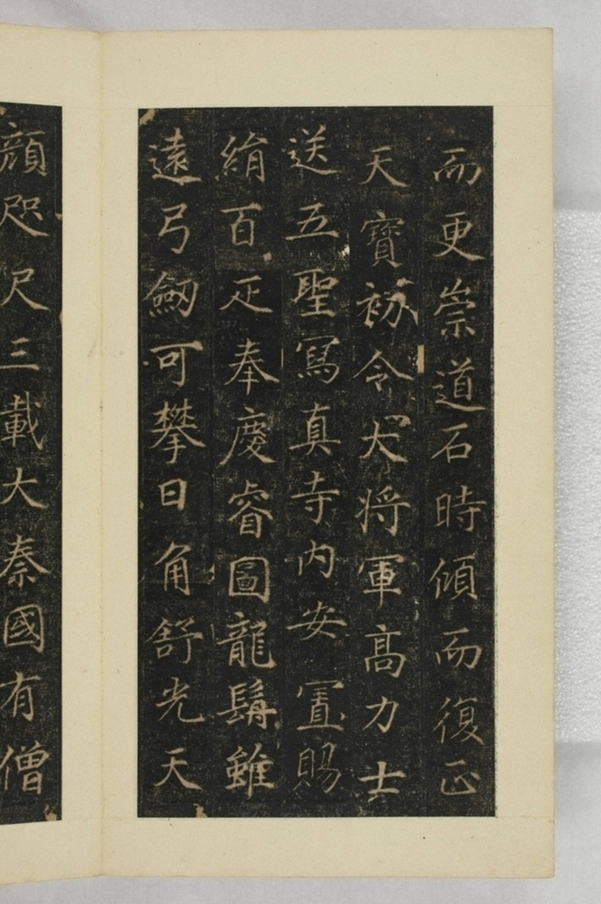 而更崇道石時傾而復正
天寶初令大將軍高力士
送五聖寫真寺内安置賜
絹百疋奉慶睿圖龍髯雖
遠弓劒可攀日角舒光天
顏咫尺三載大秦國有僧